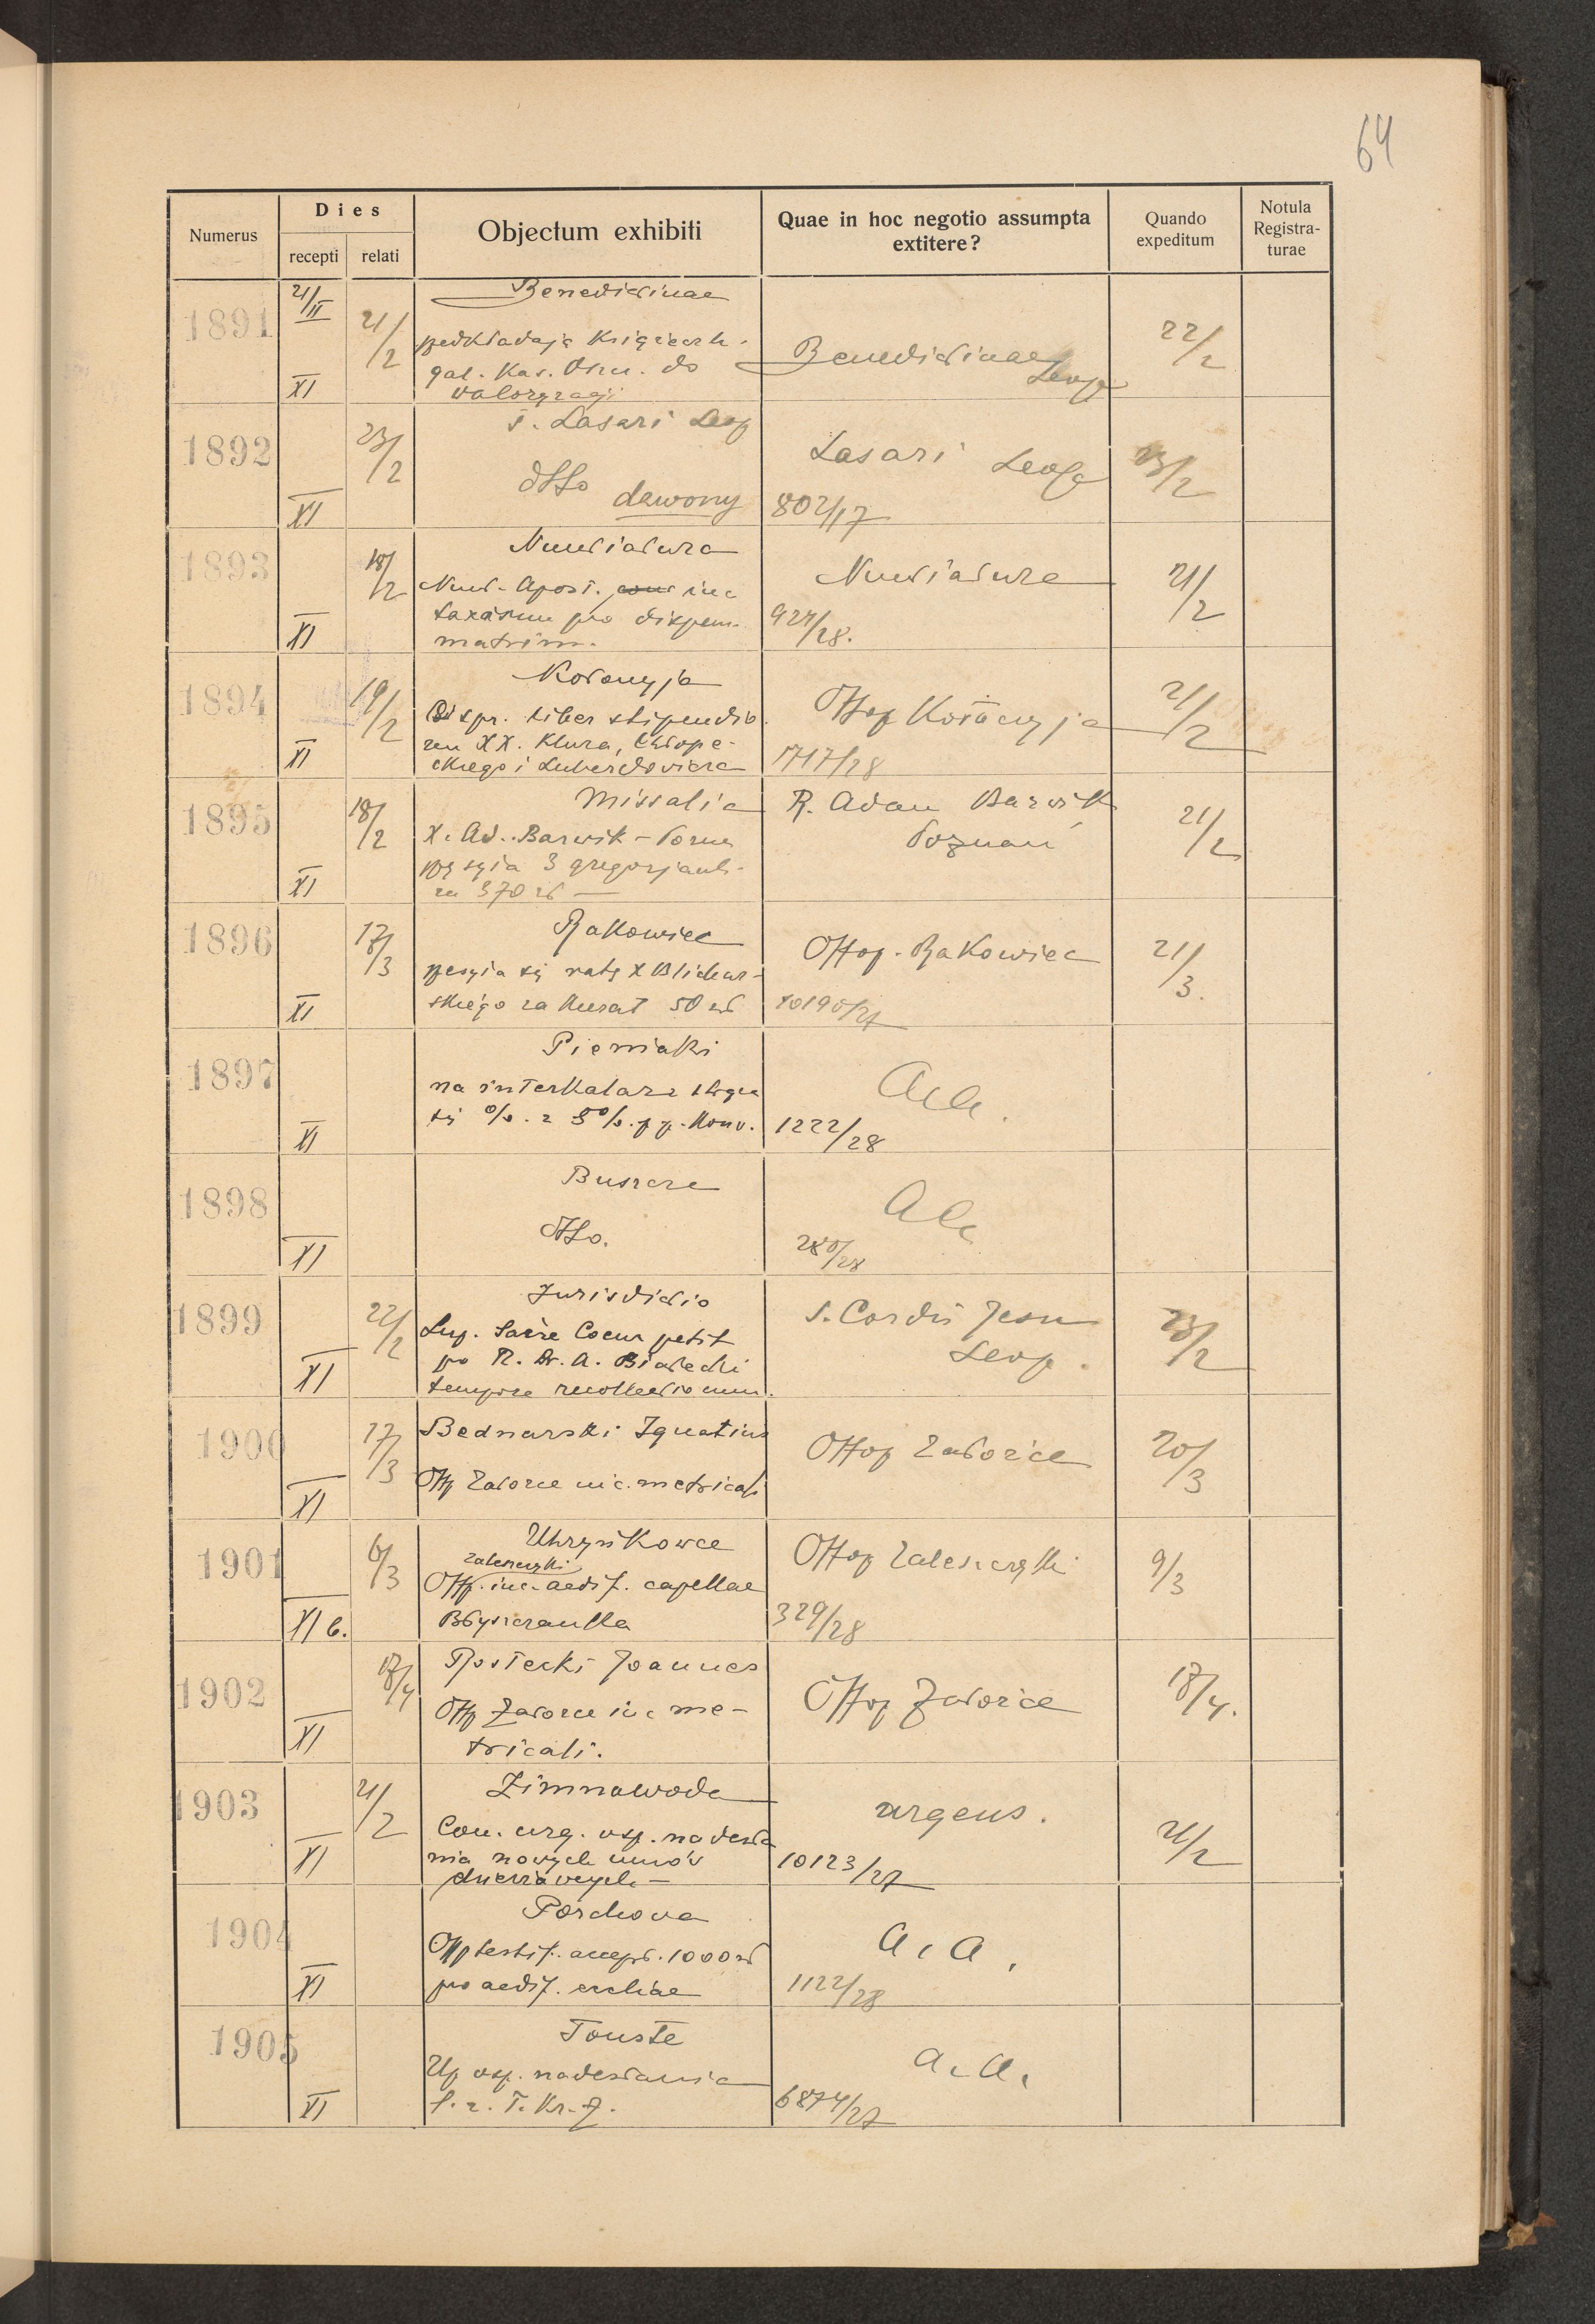 64
Numerus
Dies
recepti
relati
Objectum exhibiti
Quae in hoc negotio assumpta
extitere?
Quando
expeditum
Notula
Registra-
turae
1891
21/II
XI
21/2
Benedictinae
przedkładają Książeczk.
gal. Kas. Oszcz. do
waloryzacji
Benedictinae
Leop
22/2
1892
XI
23/2
s. Lasari Leop
dtto
Lasari Leop
802/17
23/2
1893
XI
18/2
Nuntiatura
Nunt. Apost. inc
taxarum pro dispens.
matrim.
Nuntiatura
924/28.
21/2
1894
XI
19/2
Kołomyja
spr. liber stipendio
rum XX. Klura,
ckiego i
Offop Kołomyja
1717/28
21/2
1895
XI
18/2
Missalia
X. Ad. Barwik -
3 gregorjank.
za 370 zł
R. Adam Barwik
Poznań
21/2
1896
XI
17/3
Rakowiec
skiego za 50 zł
Offop. Rakowiec
10190/27
21/3.
1897
XI
Pieniaki
na interkalarz
0/0. z 5%. p. p. Konw.
1222/28
1898
XI
Buszcze
dtto.
280/28
1899
XI
22/2
Jurisdictio
Sup. Sacre Coeur petit
pro R. Dr. A. Białecki
tempore recollectionum.
S. Cordis Jesu
Leop.
23/2
1900
XI
17/3
Bednarski Ignatius
Off Załoźce inc. metricali
Offop Załoźce
20/3
1901
XI b.
6/3
Uhryńkowce
Zaleszczyki
Off. inc. aedif. capellae
Błyszczanka
Offop Zaleszczyki
329/28
9/3
1902
XI
17/4
Rostecki Joannes
Off Załoźce inc me-
tricali.
Offop Załoźce
18/4.
1903
XI
21/2
Zimnawoda
Con. urg. usp. nadesła
nia nowych umów
dzierżawnych -
urgens.
10123/27
21/2
1904
XI
Porchowa
Off testif. accept. 1000 zł
pro aedif. eccliae
a. a.
1122/28
1905
XI
Touste
Up usp. nadesłania
T. Kr. Z.
a. a.
6874/27